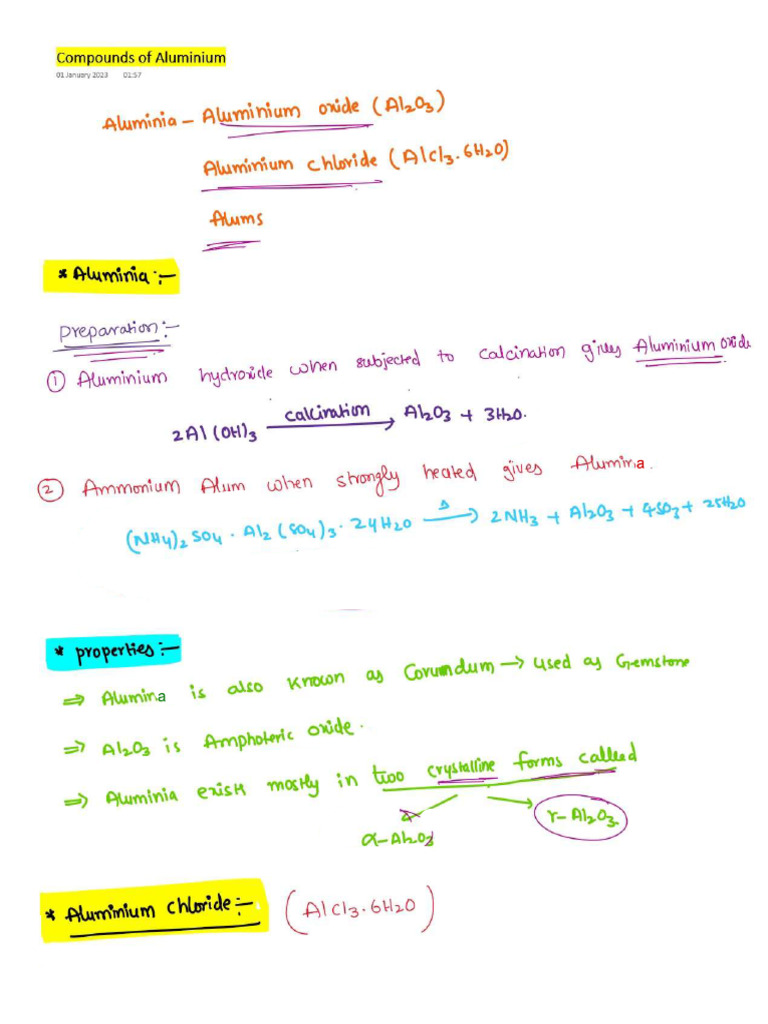 Compounds of Aluminium
01 January 2023 01:57
Aluminia – Aluminium oxide (Al2O3)
Aluminium chloride (AlCl3.6H2O)
Alums
* Aluminia:-
Preparation:-
① Aluminium hydroxide when subjected to calcination gives Aluminium oxide
2Al(OH)3 calcination → Al2O3 + 3H2O.
② Ammonium Alum when strongly heated gives Alumina.
(NH4)2SO4 · Al2(SO4)3 · 24H2O Δ → 2NH3 + Al2O3 + 4SO3 + 25H2O
* properties:-
⇒ Alumina is also known as Corundum → used as Gemstone
⇒ Al2O3 is Amphoteric oxide.
⇒ Aluminia exist mostly in two crystalline forms called
α-Al2O3 γ-Al2O3
* Aluminium chloride:- (AlCl3.6H2O)